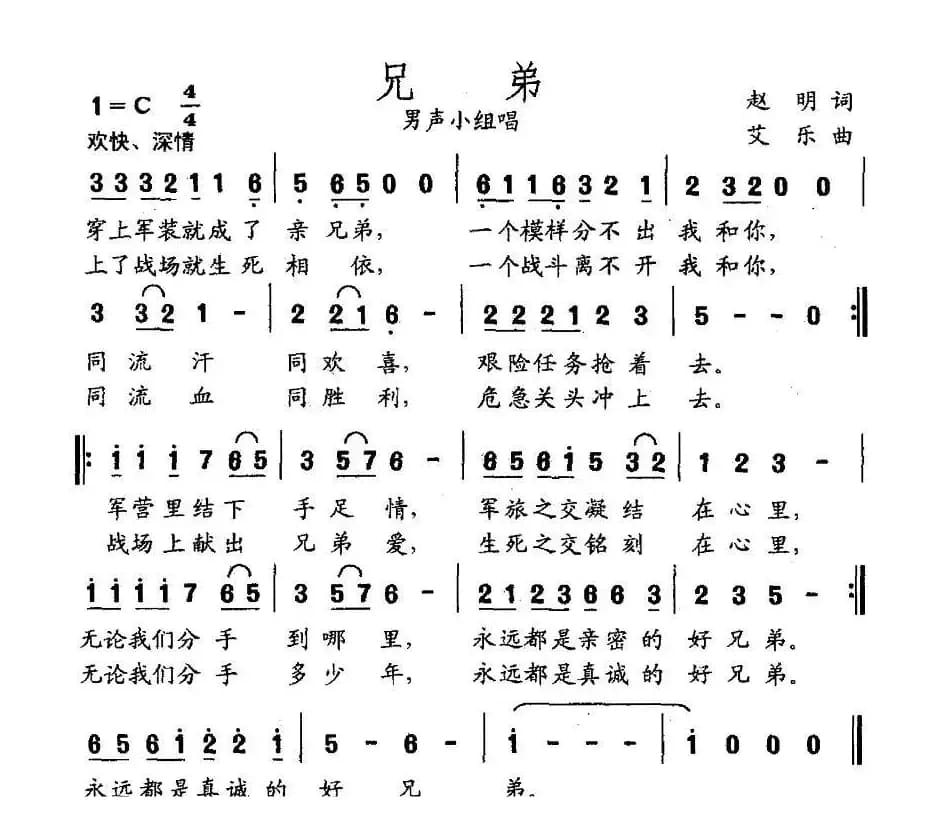 兄 弟
1=C 4/4
男声小组唱
赵 明 词
欢快、深情
艾 乐 曲
3 3 3 2 1 1 6 | 5 6 5 0 0 | 6 1 1 6 3 2 1 | 2 3 2 0 0 |
穿上军装就成了 亲兄弟, 一个模样分不出 我和你,
上了战场就生死 相 依, 一个战斗离不开 我和你,
3 3 2 1 - | 2 2 1 6 - | 2 2 2 2 1 2 3 | 5 - - 0 :||
同 流 汗 同 欢 喜, 艰险任务抢着 去。
同 流 血 同 胜 利, 危急关头冲上 去。
||: i i i 7 6 5 | 3 5 7 6 - | 6 5 6 i 5 3 2 | 1 2 3 - |
军营里结下 手足情, 军旅之交凝结 在心里,
战场上献出 兄弟爱, 生死之交铭刻 在心里,
i i i i 7 6 5 | 3 5 7 6 - | 2 1 2 3 6 6 3 | 2 3 5 - :||
无论我们分手 到哪里, 永远都是亲密的 好兄弟。
无论我们分手 多少年, 永远都是真诚的 好兄弟。
6 5 6 i 2 2 i | 5 - 6 - | i - - - | i 0 0 0 ||
永远都是真诚的 好 兄 弟。